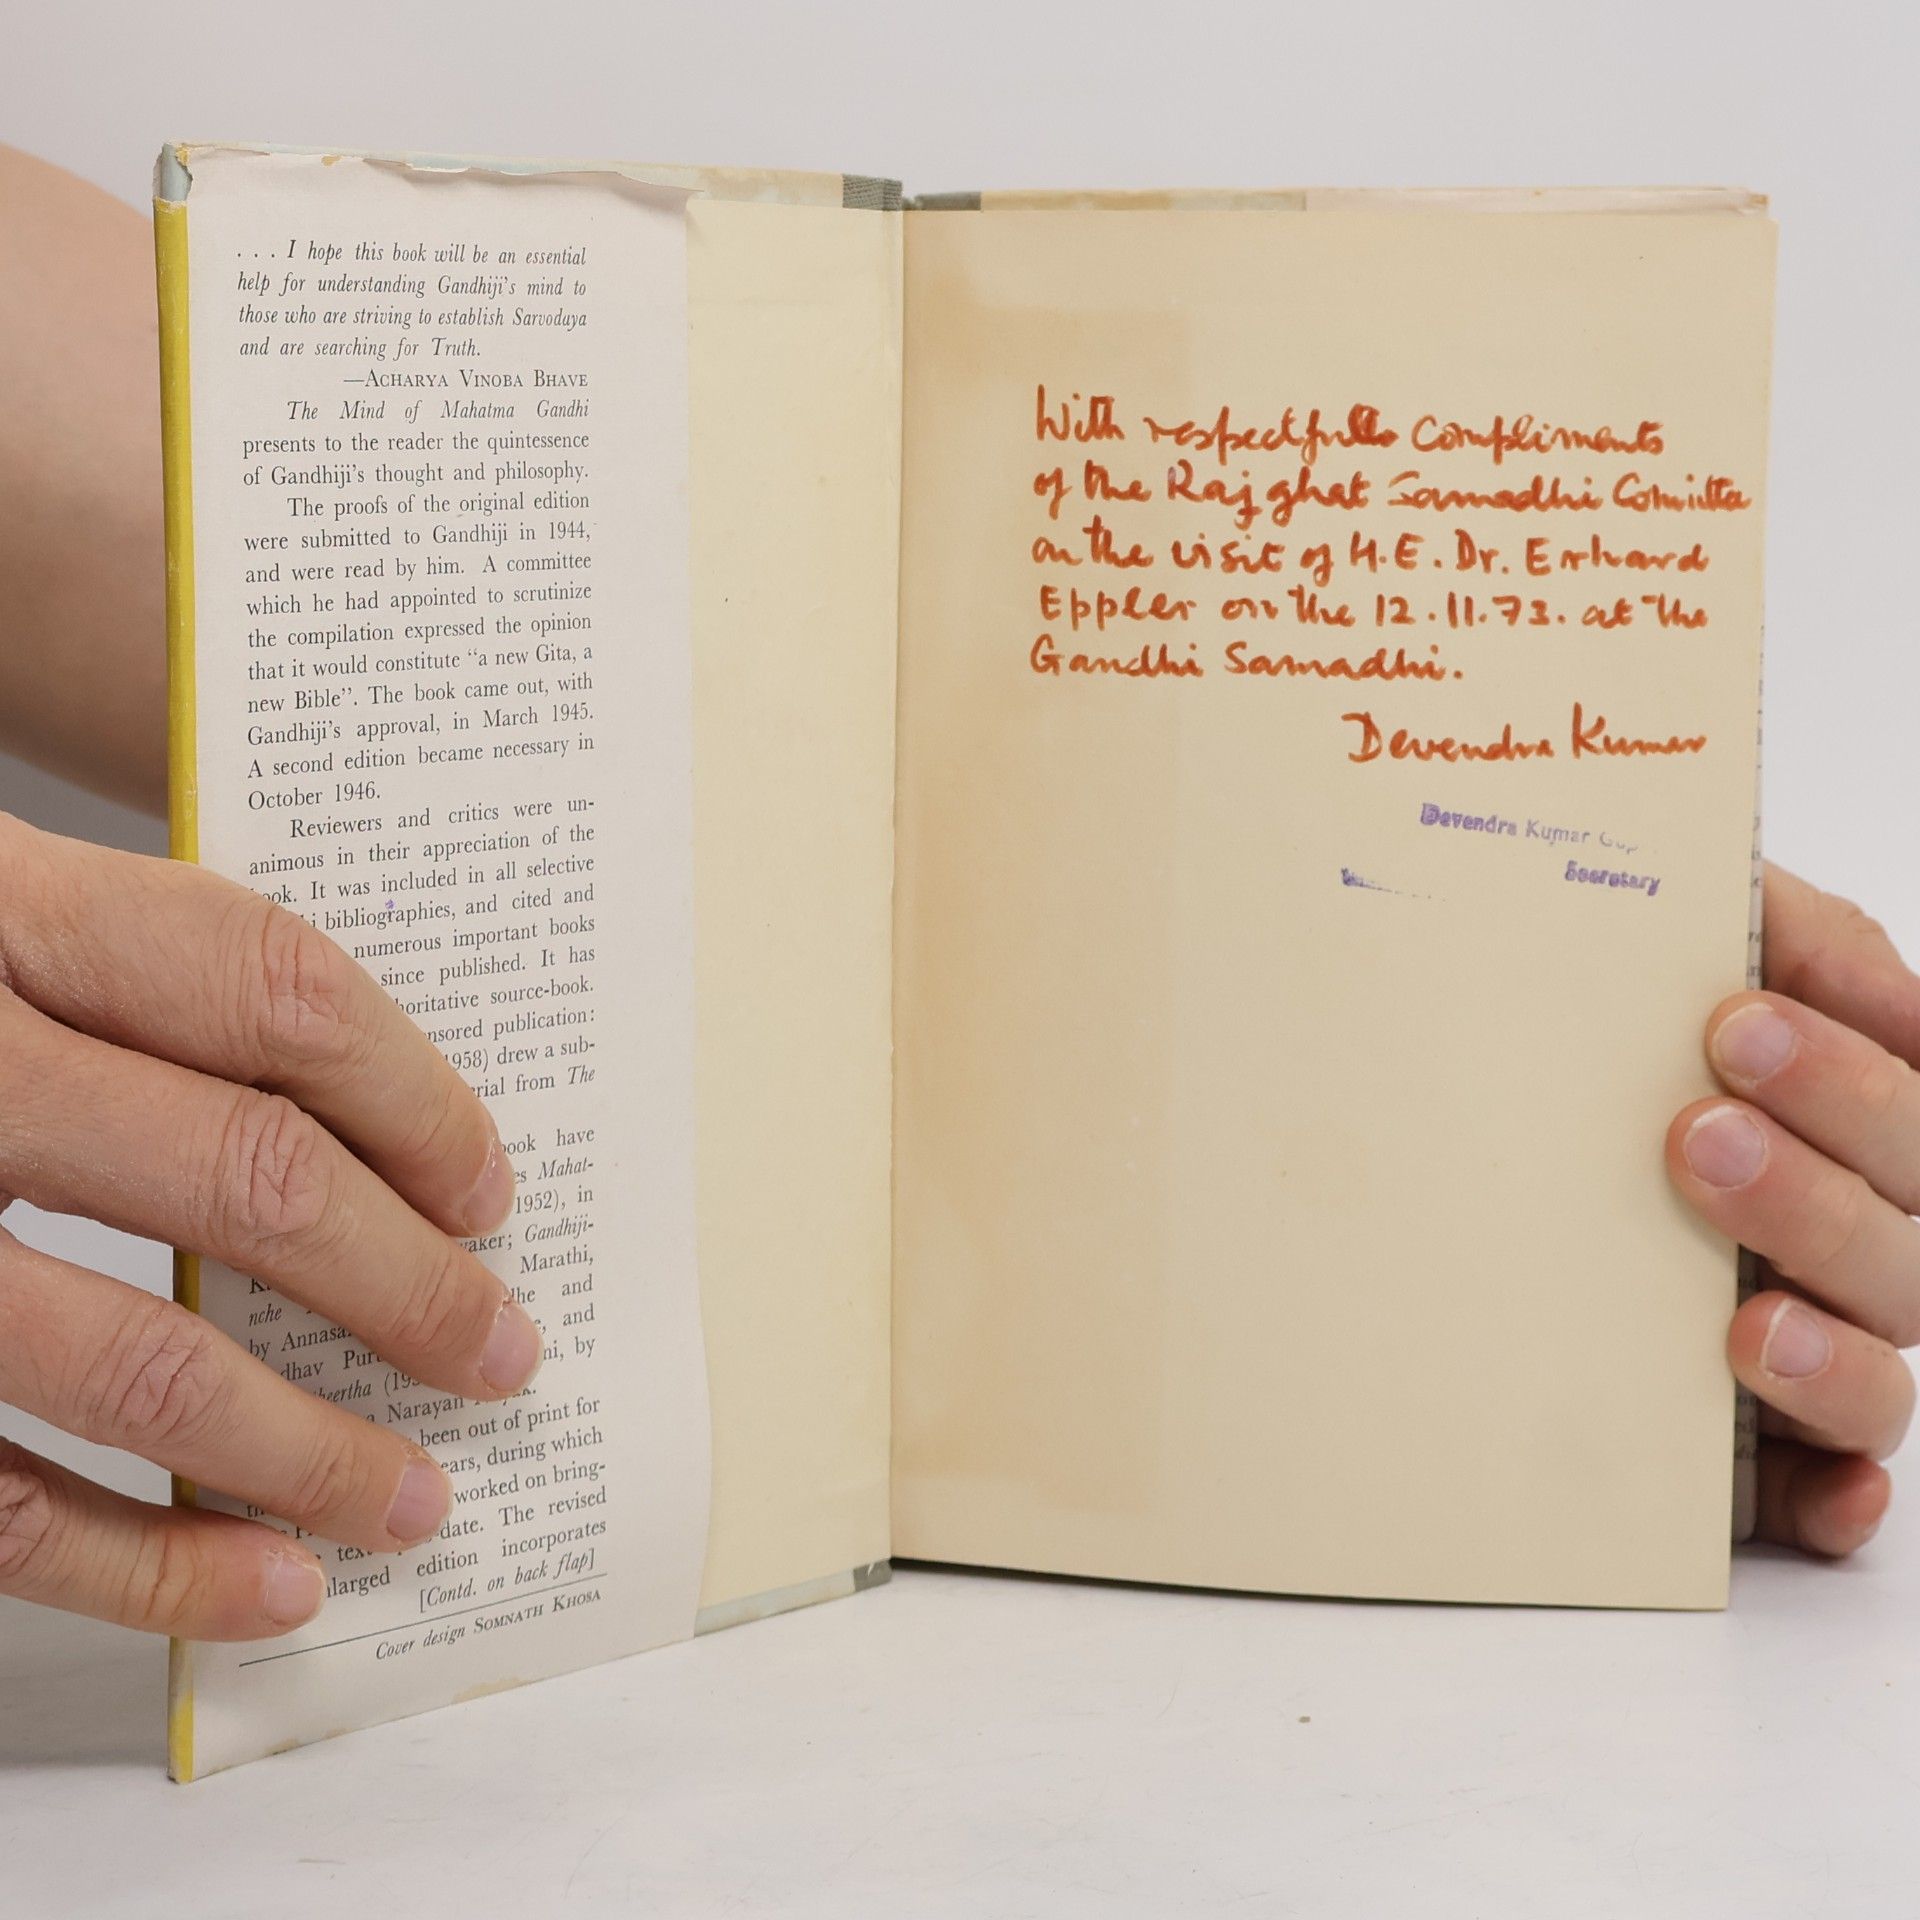 . . . I hope this book will be an essential
help for understanding Gandhiji's mind to
those who are striving to establish Sarvodaya
and are searching for Truth.
—ACHARYA VINOBA BHAVE
The Mind of Mahatma Gandhi
presents to the reader the quintessence
of Gandhiji's thought and philosophy.
The proofs of the original edition
were submitted to Gandhiji in 1944,
and were read by him. A committee
which he had appointed to scrutinize
the compilation expressed the opinion
that it would constitute "a new Gita, a
new Bible". The book came out, with
Gandhiji's approval, in March 1945.
A second edition became necessary in
October 1946.
Reviewers and critics were un-
animous in their appreciation of the
book. It was included in all selective
bibliographies, and cited and
numerous important books
since published. It has
source-book.
publication:
1958) drew a sub-
from The
have
Mahat-
1952), in
Gandhiji-
Marathi,
and
and
by
nche
by
Narayan
been out of print for
during which
worked on bring-
The revised
edition incorporates
[Contd. on back flap]
Cover design SOMNATH KHOSA
With respectful Compliments
of the Rajghat Samadhi Comittee
on the visit of H.E. Dr. Erhard
Eppler on the 12.11.73. at the
Gandhi Samadhi.
Devendra Kumar
Devendra Kumar
Secretary